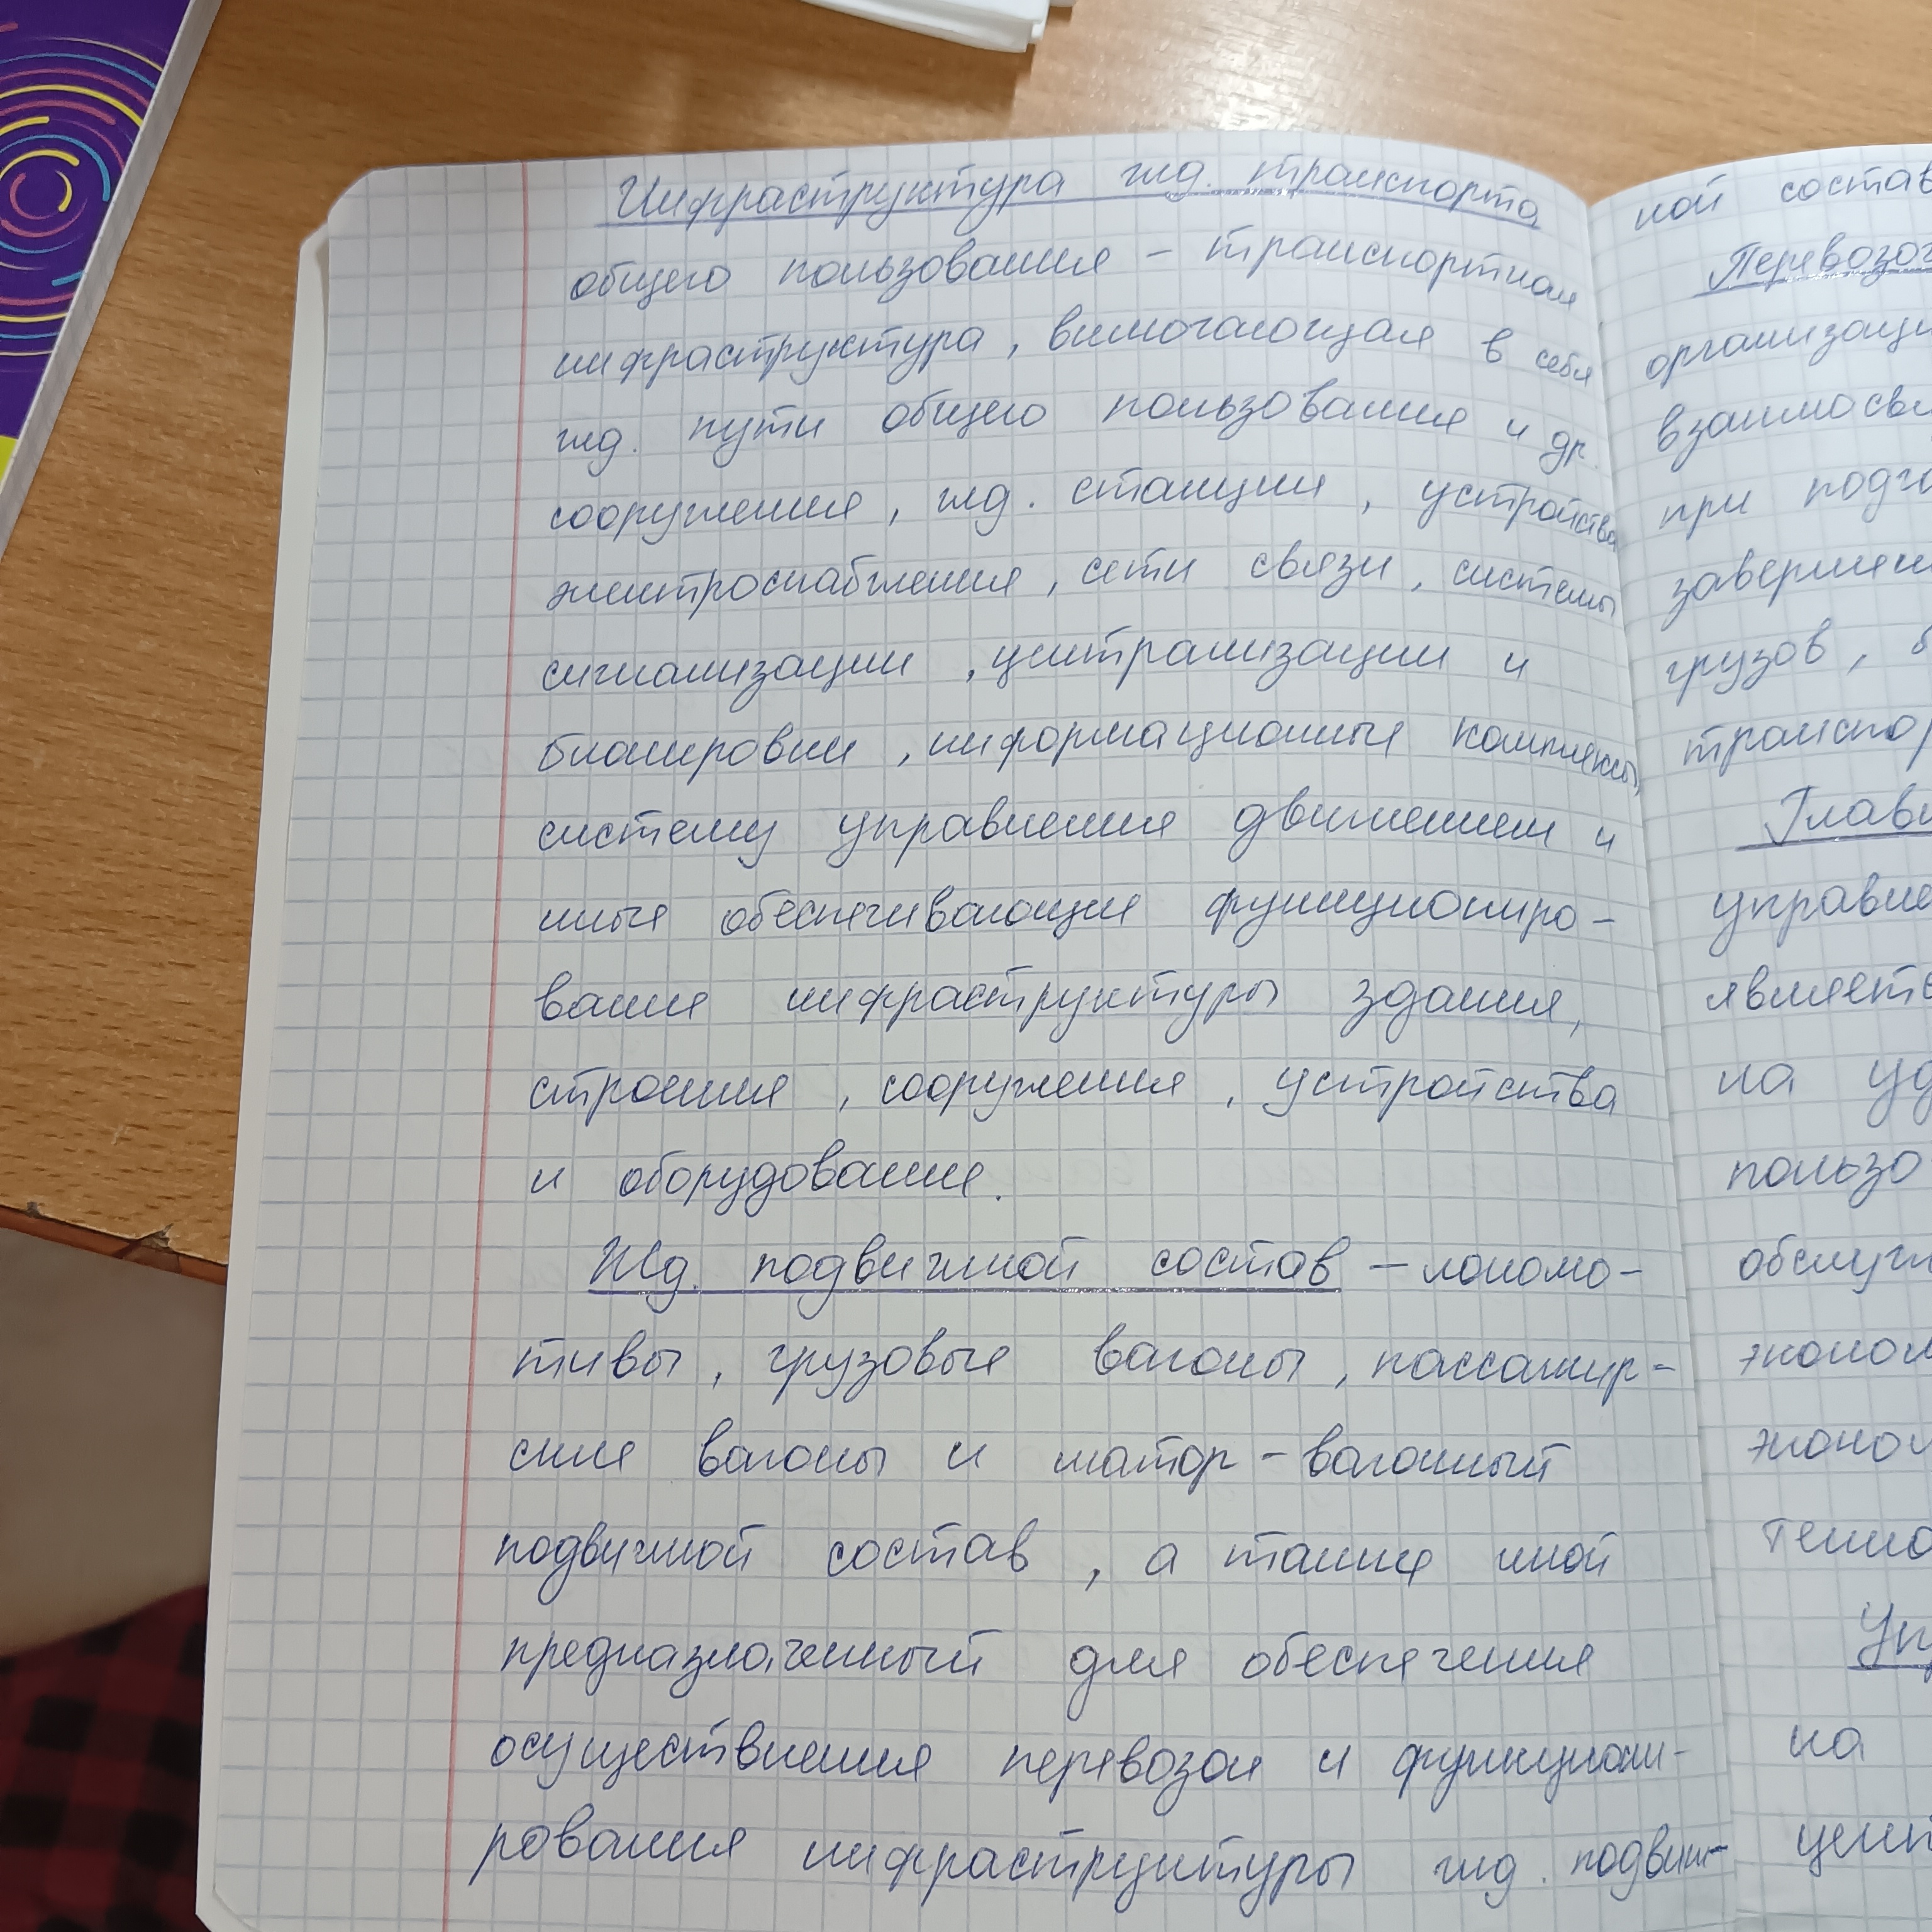 Инфраструктура жд. транспорта
общего пользования – транспортная
инфраструктура, включающая в себя
жд. пути общего пользования и др.
сооружения, жд. станции, устройства
электроснабжения, сети связи, системы
сигнализации, централизации и
блокировки, информационные комплексы,
систему управления движением и
иные обеспечивающие функциониро-
вание инфраструктуры здания,
строения, сооружения, устройства
и оборудование.
Жд. подвижной состав – локомо-
тивы, грузовые вагоны, пассажир-
ские вагоны и мотор-вагонный
подвижной состав, а также иной
предназначенный для обеспечения
осуществления перевозок и функциони-
рования инфраструктуры жд. подвиж-
ной состав
Перевозоч
организаци
взаимосвя
при подго
завершен
грузов, б
транспор
Главн
управле
являетс
на уд
пользо
обслуж
эконом
эконом
техно
Упр
на
цент